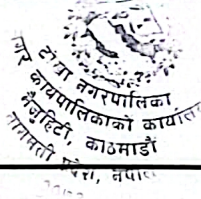 टोखा नगरपालिका
नगर कार्यपालिकाको कार्यालय
मैजुहिटी, काठमाडौं
बागमती प्रदेश, नेपाल